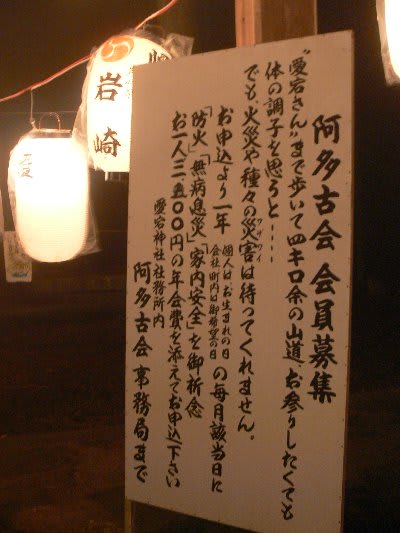 阿多古会会員募集
"愛宕さん"まで歩いて四キロ余の山道、お参りしたくても
体の調子を思うと・・・・
でも、火災や種々の災害は待ってくれません。
ワザワイ
お申込より一年
個人は、お生まれの日
会社町内は御希望の日
の毎月該当日に
「防火」「無病息災」「家内安全」を御祈念
お一人二、五〇〇円の年会費を添えてお申込下さい
愛宕神社社務所内
阿多古会事務局まで
岩崎